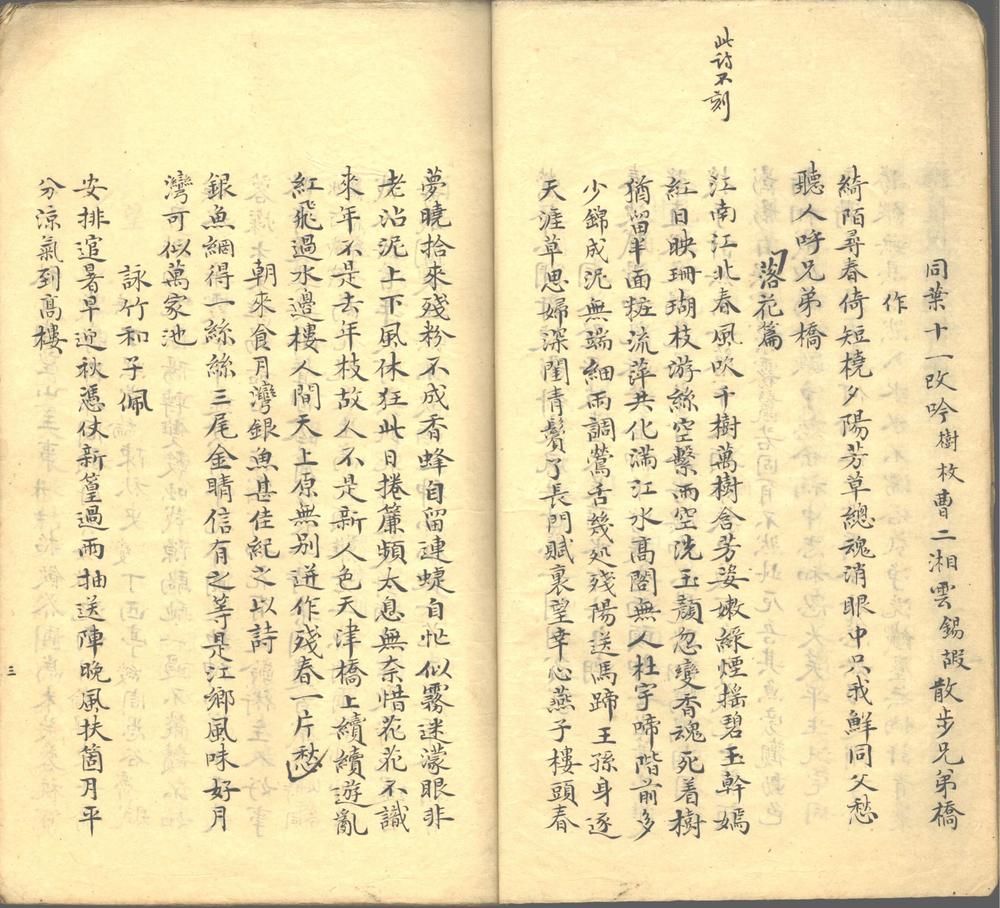 此詩不刻
同葉十一改吟樹枚曹二湘雲錫嘏散步兄弟橋
作
綺陌尋春倚短橈夕陽芳草總魂消眼中只我鮮同父愁
聽人呼兄弟橋
落花篇
江南江北春風吹千樹萬樹含芳姿嫩綠煙搖碧玉幹嫣
紅日映珊瑚枝游絲空繫雨空洗玉顏忽變香魂死着樹
猶留半面粧流萍共化滿江水高閣無人杜宇啼階前多
少錦成泥無端細雨調鶯舌幾処殘陽送馬蹄王孫身逐
天涯草思婦深閨青鬢了長門賦裏望幸心燕子樓頭春
夢曉拾來殘粉不成香蜂自留連蜨自忙似霧迷濛眼非
老沾泥上下風休狂此日捲簾頻太息無奈惜花花不識
來年不是去年枝故人不是新人色天津橋上續續遊亂
紅飛過水邊樓人間天上原無別迸作殘春一片愁
朝來食月灣銀魚甚佳紀之以詩
銀魚網得一絲絲三尾金睛信有之等是江鄉風味好月
灣可似萬家池
詠竹和子佩
安排逭暑早迎秋憑仗新篁過雨抽送陣晚風扶箇月平
分涼氣到高樓
三